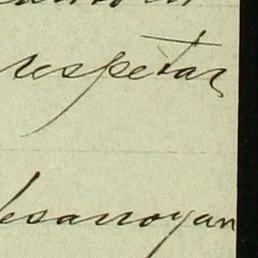 respetar
desarroyan